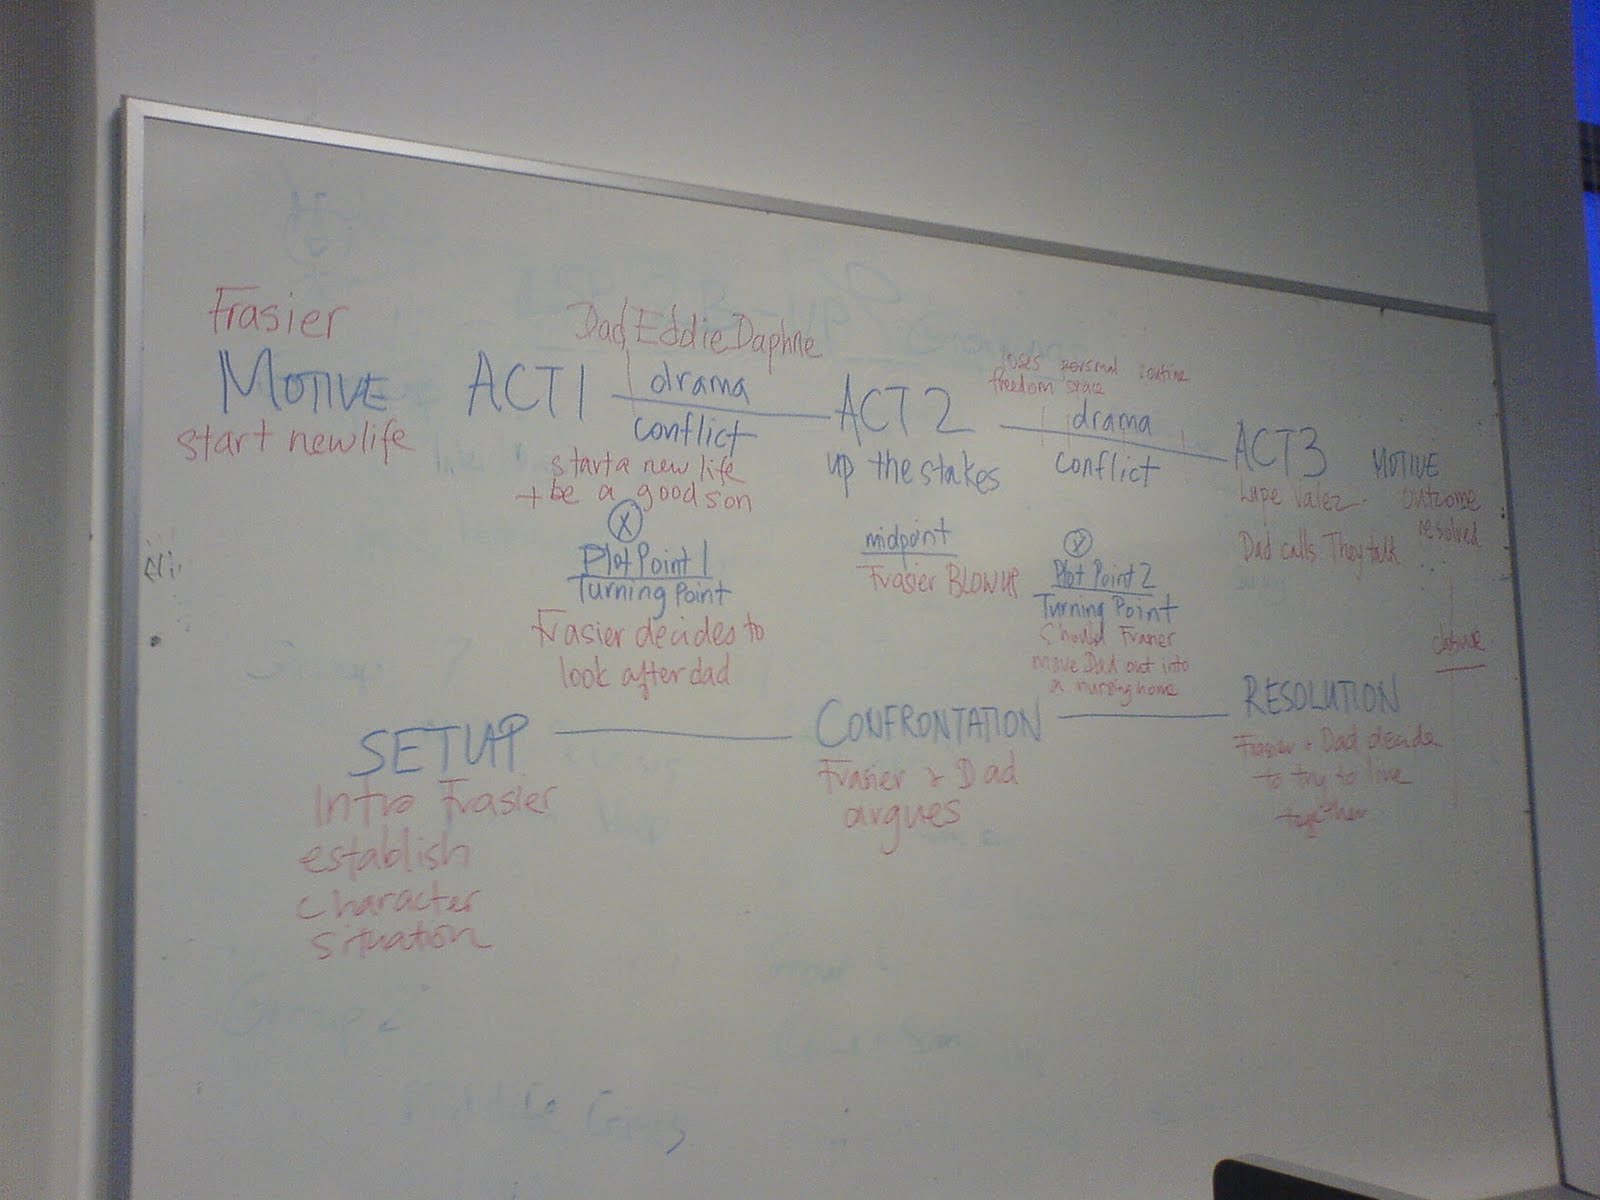 Frasier
MOTIVE
start new life
Dad, Eddie Daphne
ACT 1
drama
conflict
start a new life
+ be a good son
X
Plot Point 1
Turning Point
Frasier decides to
look after dad
ACT 2
up the stakes
midpoint
Frasier BLOW UP
loses personal routine
freedom space
drama
conflict
Plot Point 2
Turning Point
Should Frasier
move Dad out into
a nursing home
ACT 3
Lupe Valez
Dad calls They talk
MOTIVE
outcome
resolved
...
closure
SETUP
Intro Frasier
establish
character
situation
CONFRONTATION
Frasier + Dad
argues
RESOLUTION
Frasier + Dad decide
to try to live
together
Group 2